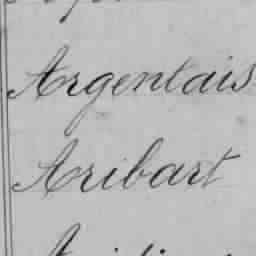 Argentais
Aribart